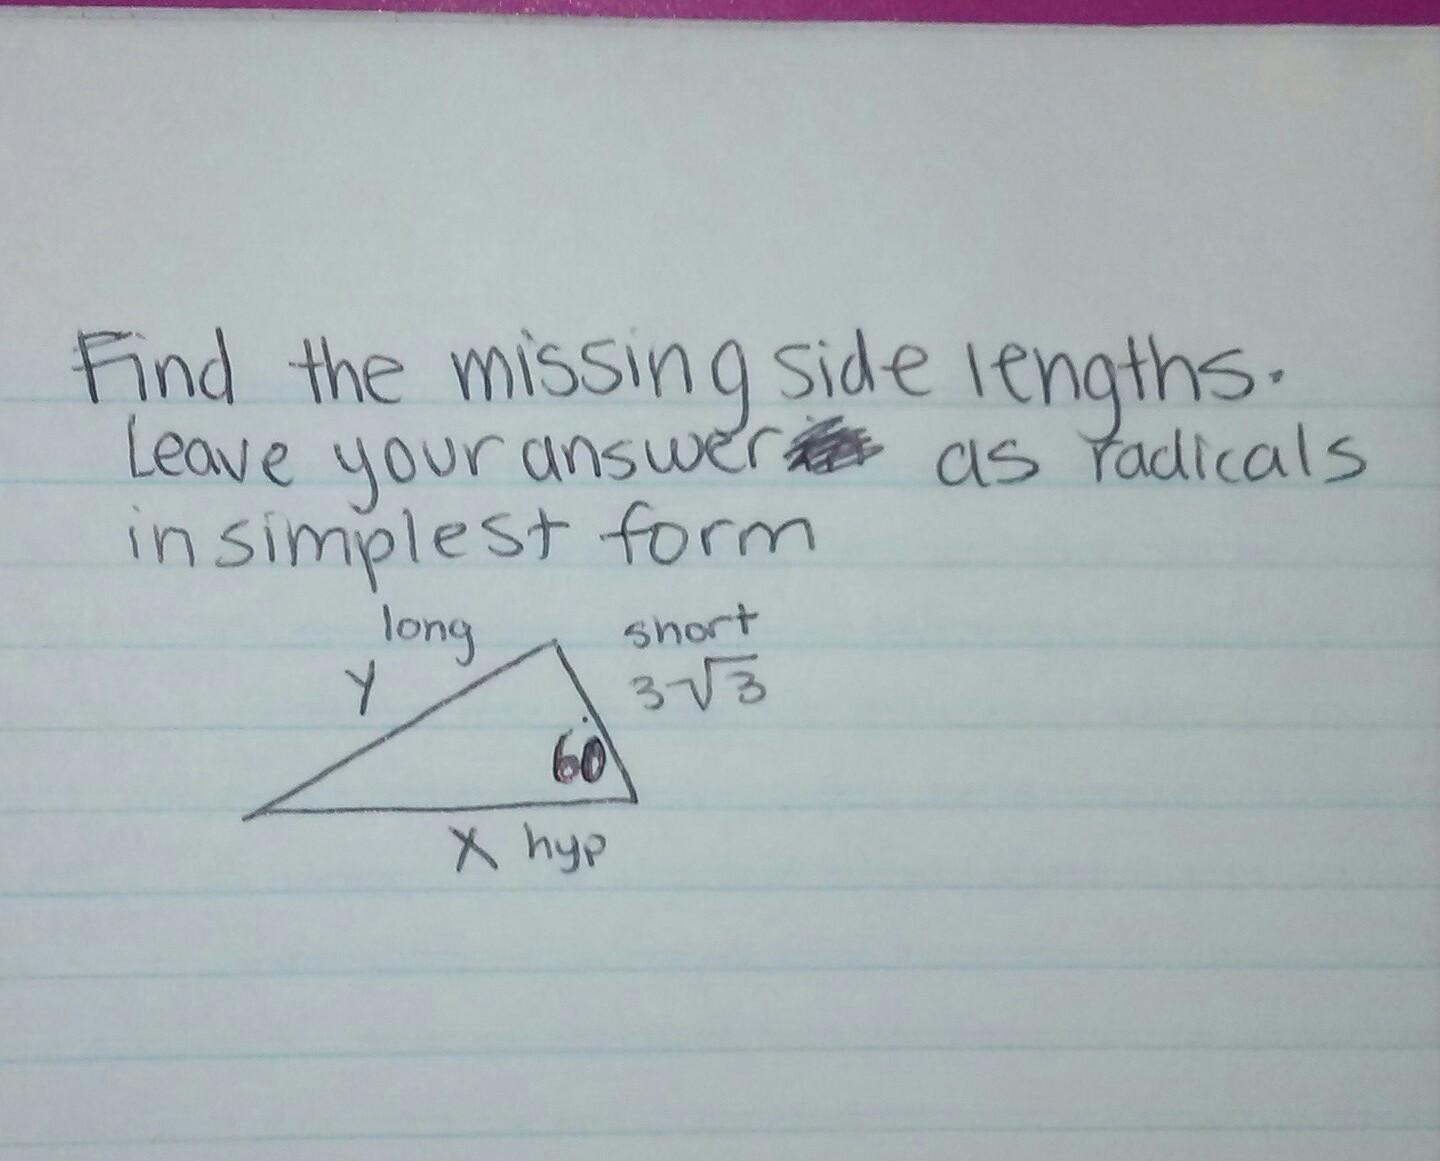 Find the missing side lengths.
Leave your answer as radicals
in simplest form
long short
y 3√3
60
x hyp